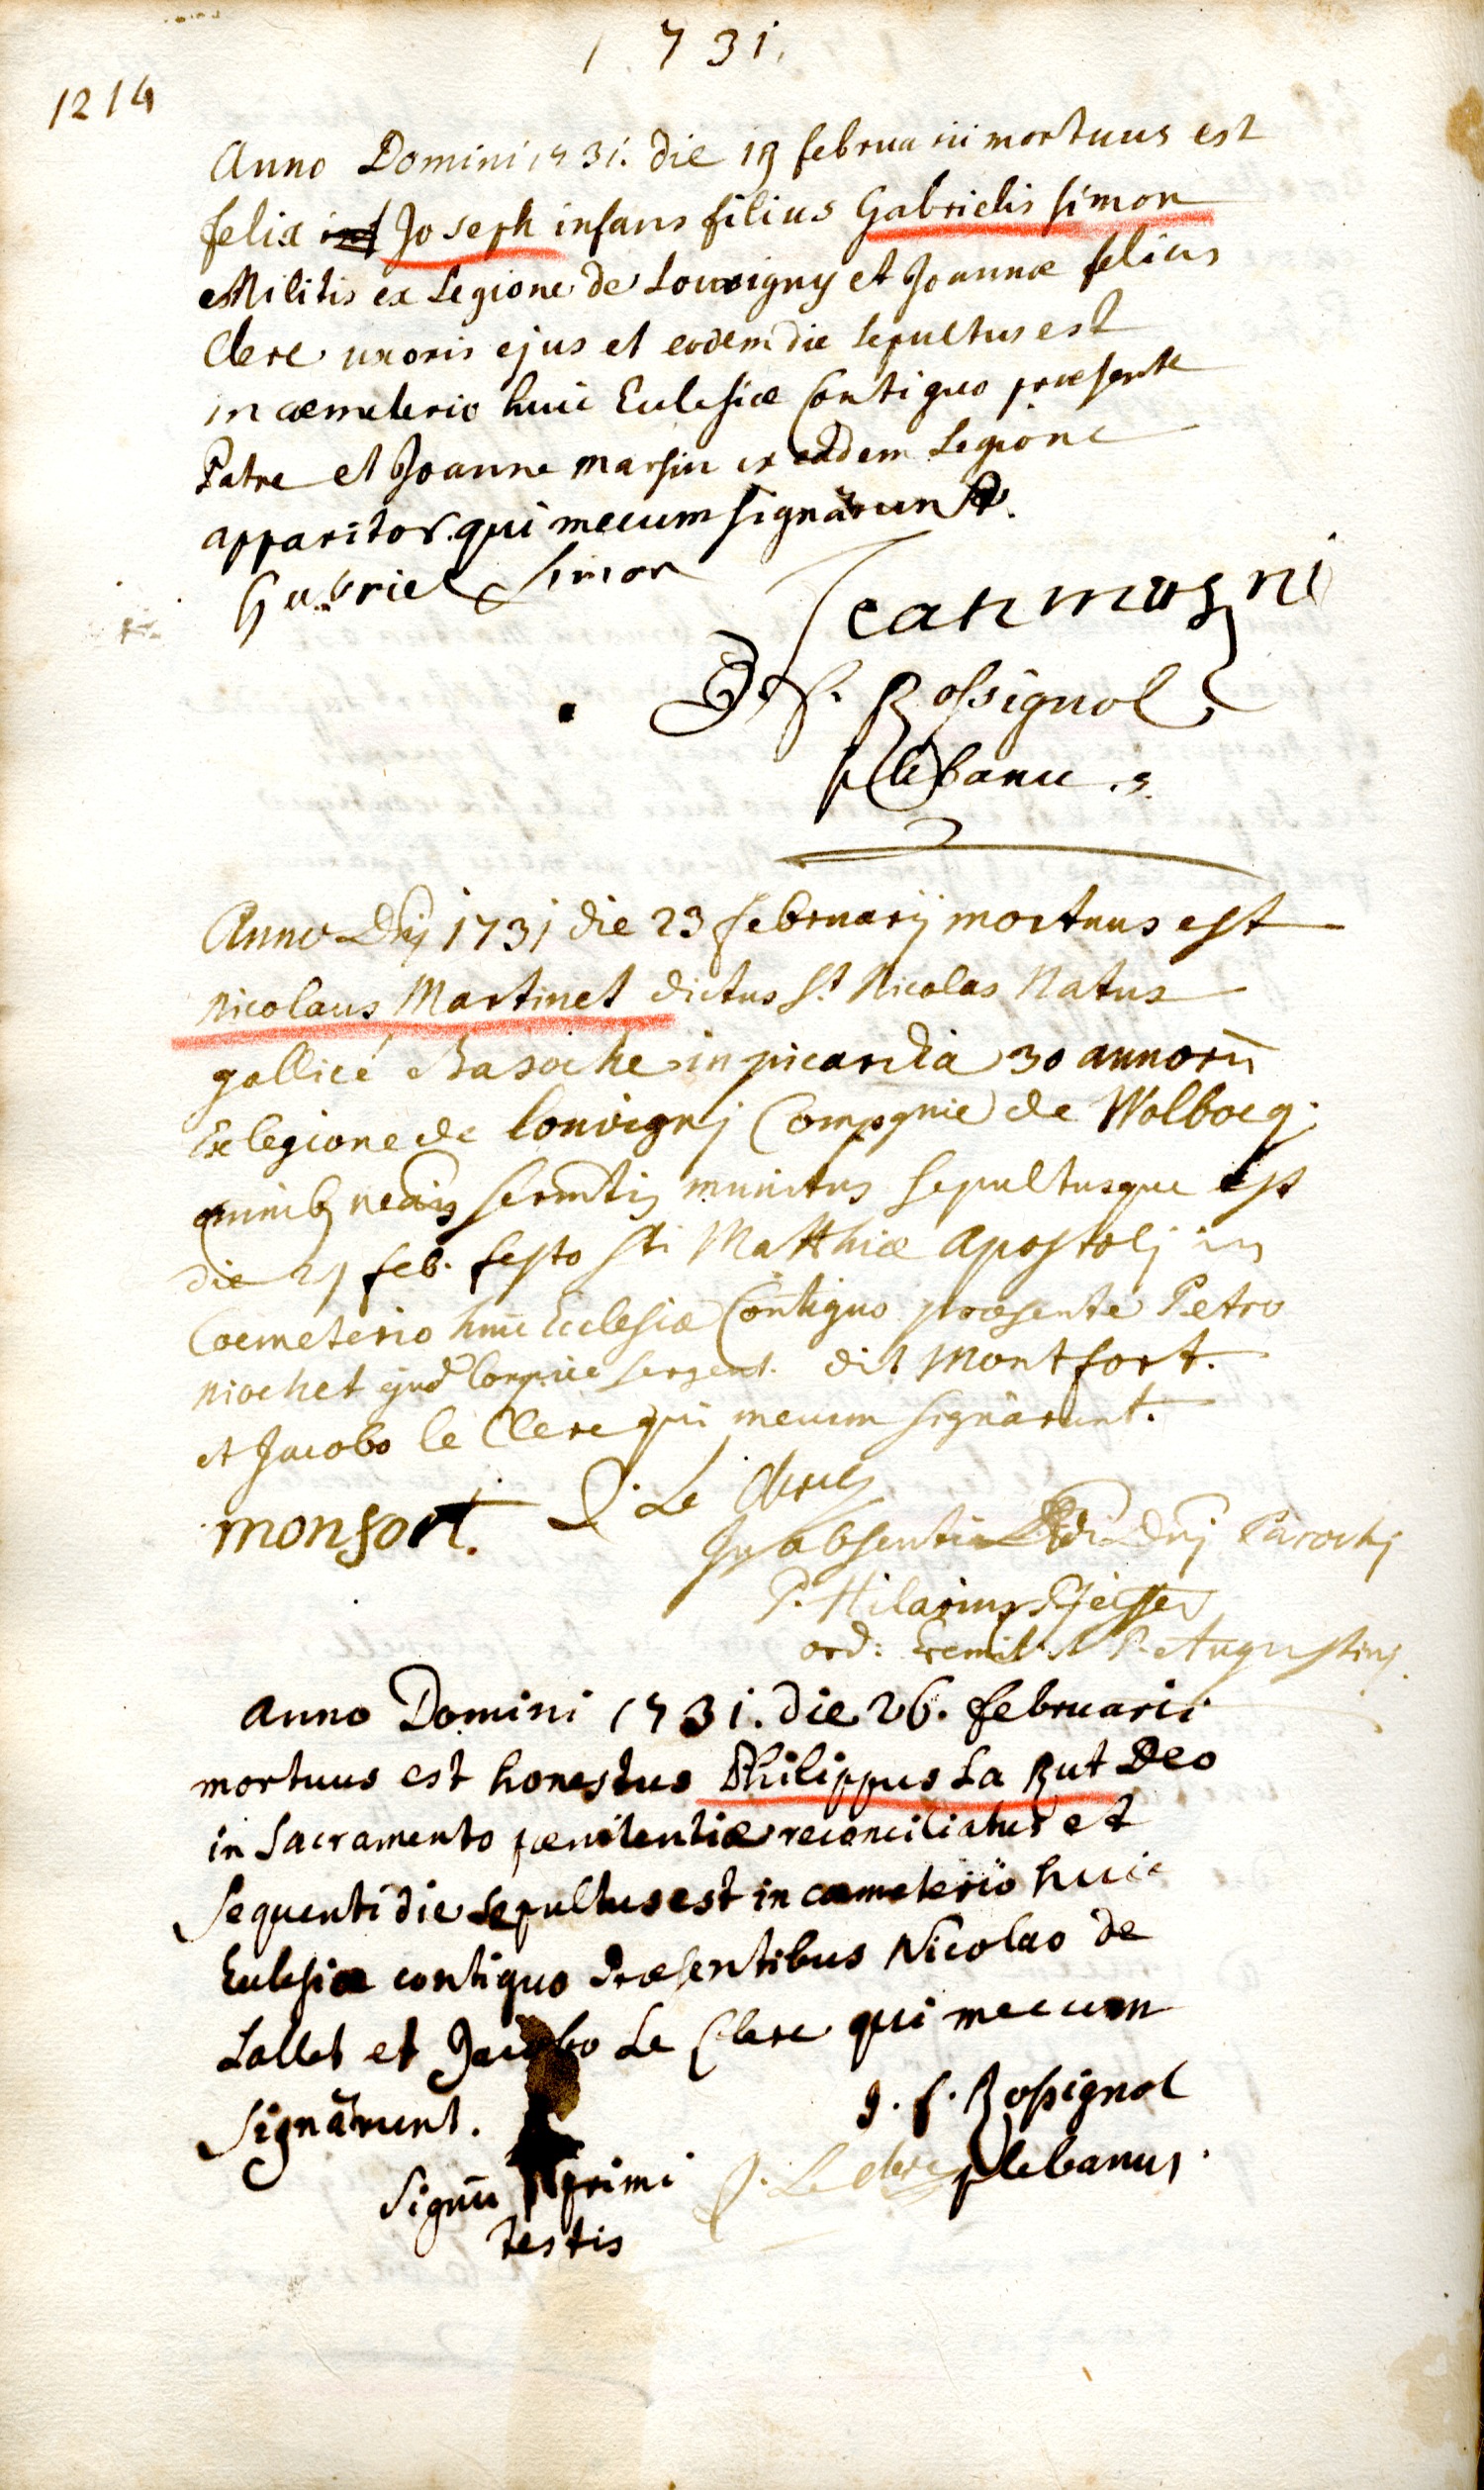 1731.
1214
Anno Domini 1731. die 19 februarii mortuus est
felix Joseph infans filius Gabrielis simon
Militis ex Legione de Louvigny et Joannæ felicis
Clere uxoris ejus et eodem die sepultus est
in cæmeterio huic Ecclesiæ Contiguo præsente
Patre et Joanne marsin ex eadem Legione
apparitor. qui mecum signârunt.
Gabriel Simon
Jean
J. f. Rossignol
plebanus
Anno Dnj 1731 die 23 februarij mortuus est
Nicolaus Martinet dictus St Nicolas Natus
gallicé Basoche in picardia 30 annorū
Ex legione de louvignj Compgnie de Wolbocq.
omnibq necariis sermtis munitus sepultusque est
die 24 feb. festo sti Matthiæ Apostolj in
Coemeterio huic Ecclesiæ Contiguo præsente Petro
niochet ejusd Compnie sergent. dit Montfort.
et Jacobo le Clerc qui mecum signârunt.
monfort. J. Le Clercq
In absentia Rdi Dnj Parochj
P. Hilarius
ord: Eremit: S. P. Augustinj
Anno Domini 1731. die 26. februarii
mortuus est honestus Philippus La Rut Deo
in Sacramento pœnitentiæ reconciliatus et
Sequenti die sepultus est in cæmeterio huic
Ecclesiæ contiguo Præsentibus Nicolao de
Lallet et Jacobo Le Clerc qui mecum
Signârunt.
J. f. Rossignol
Signū primi J. Leclerc plebanus.
testis